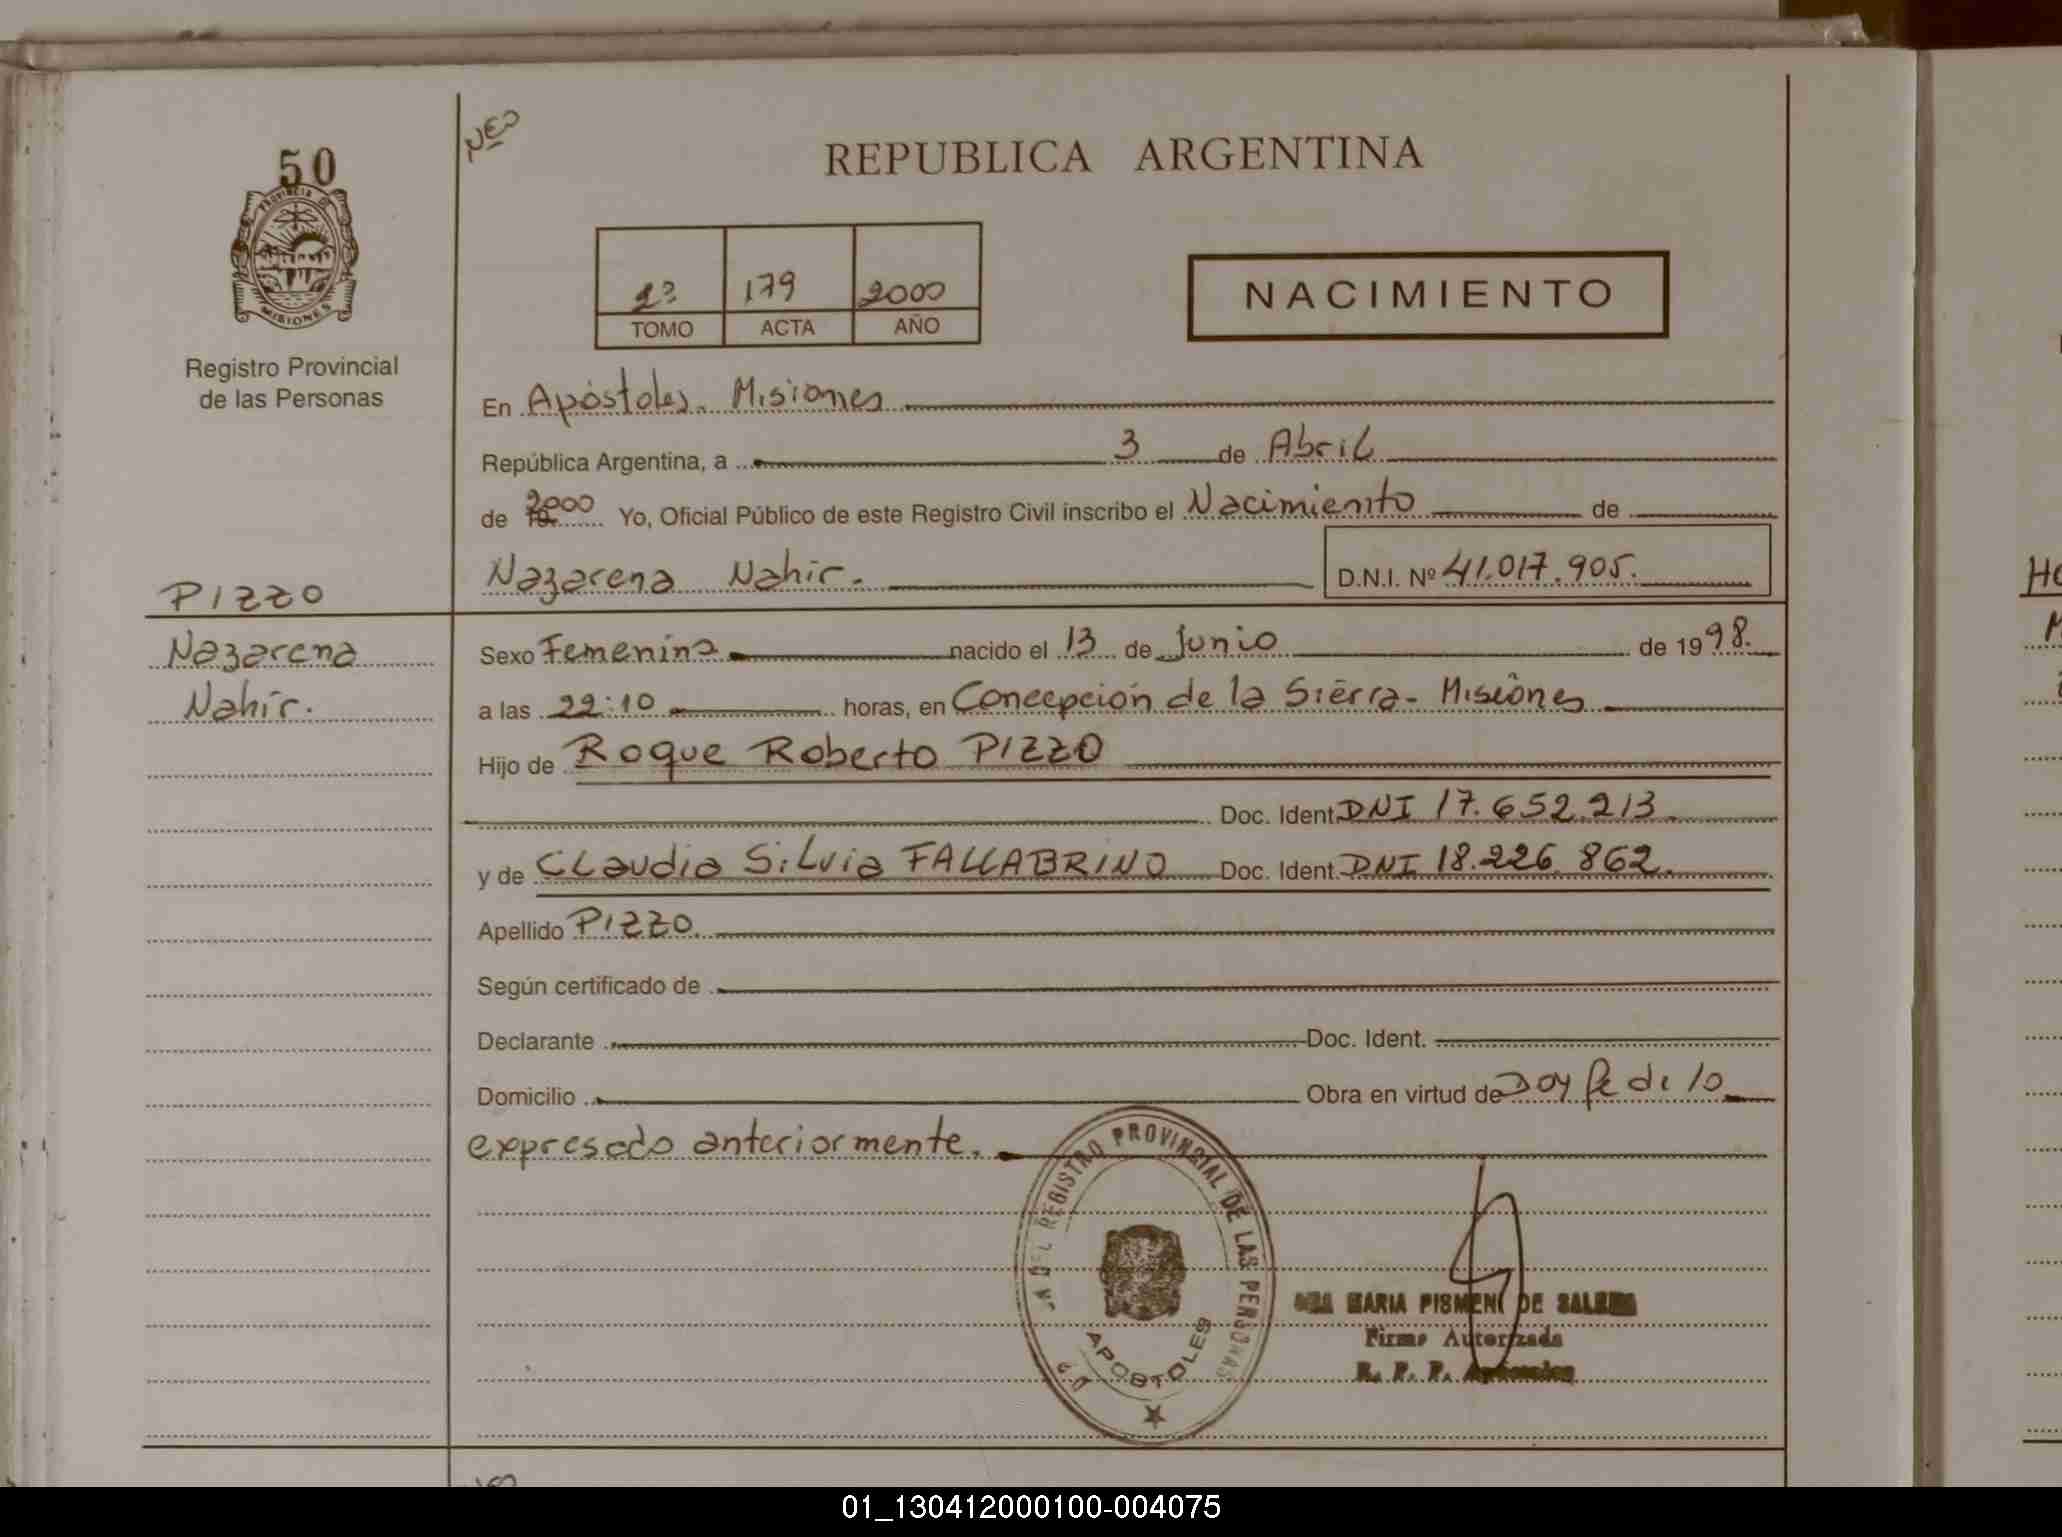 NEO
50
PROVINCIA DE
MISIONES
Registro Provincial
de las Personas
REPUBLICA ARGENTINA
2º 179 2000
TOMO ACTA AÑO
NACIMIENTO
En Apóstoles. Misiones
República Argentina, a 3 de Abril
de 19 2000 Yo, Oficial Público de este Registro Civil inscribo el Nacimiento de
Nazarena Nahir. D.N.I. Nº 41.017.905.
PIZZO
Nazarena
Nahir.
Sexo Femenina nacido el 13 de Junio de 1998.
a las 22:10 horas, en Concepción de la Sierra - Misiones
Hijo de Roque Roberto PIZZO
Doc. Ident. DNI 17.652.213.
y de Claudia Silvia FALLABRINO Doc. Ident. DNI 18.226.862.
Apellido PIZZO.
Según certificado de
Declarante Doc. Ident.
Domicilio Obra en virtud de Doy fe de lo
expresado anteriormente.
DEL REGISTRO PROVINCIAL DE LAS PERSONAS
APOSTOLES
MARIA PISMENI DE
Firma Autorizada
R. P. P. Apóstoles
01_130412000100-004075